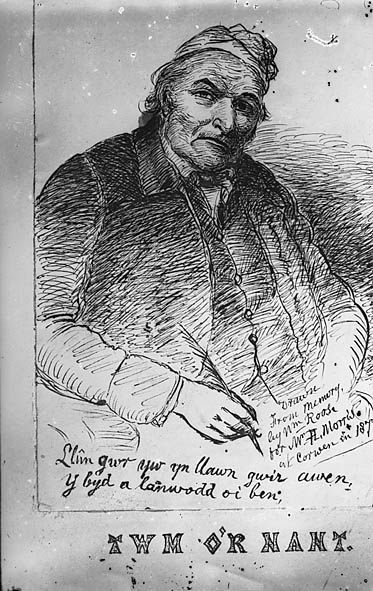 Drawn
From Memory,
by Wm Roose
for Mr H. Morris
at Corwen in 187
Llûn gwr yw yn llawn gwir awen,
Y byd a lanwodd oi ben;
TWM O'R NANT.